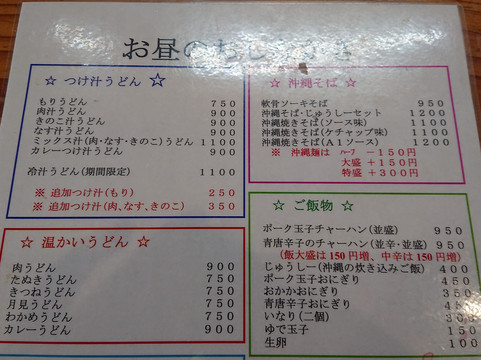 お昼の
☆ つけ汁うどん ☆
もりうどん 750
肉汁うどん 900
きのこ汁うどん 900
なす汁うどん 900
ミックス汁(肉・なす・きのこ)うどん 1100
カレーつけ汁うどん 900
冷汁うどん(期間限定) 1100
※ 追加つけ汁(もり) 250
※ 追加つけ汁(肉、なす、きのこ) 350
☆ 温かいうどん ☆
肉うどん 900
たぬきうどん 750
きつねうどん 750
月見うどん 750
わかめうどん 750
カレーうどん 900
☆ 沖縄そば ☆
軟骨ソーキそば 950
沖縄そば・じゅうしーセット 1200
沖縄焼きそば(ソース味) 1100
沖縄焼きそば(ケチャップ味) 1100
沖縄焼きそば(A1ソース) 1200
※ 沖縄麺は ハーフ -150円
大盛 +150円
特盛 +300円
☆ ご飯物 ☆
ポーク玉子チャーハン(並盛) 950
青唐辛子のチャーハン(並辛・並盛) 950
(飯大盛は150円増、中辛は150円増)
じゅうしー(沖縄の炊き込みご飯) 400
ポーク玉子おにぎり 450
おかかおにぎり 350
青唐辛子おにぎり 450
いなり(二個) 300
ゆで玉子 150
生卵 100